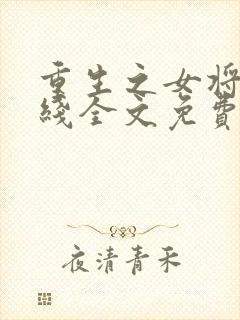 重生之女将
綫全文免費
夜清青禾